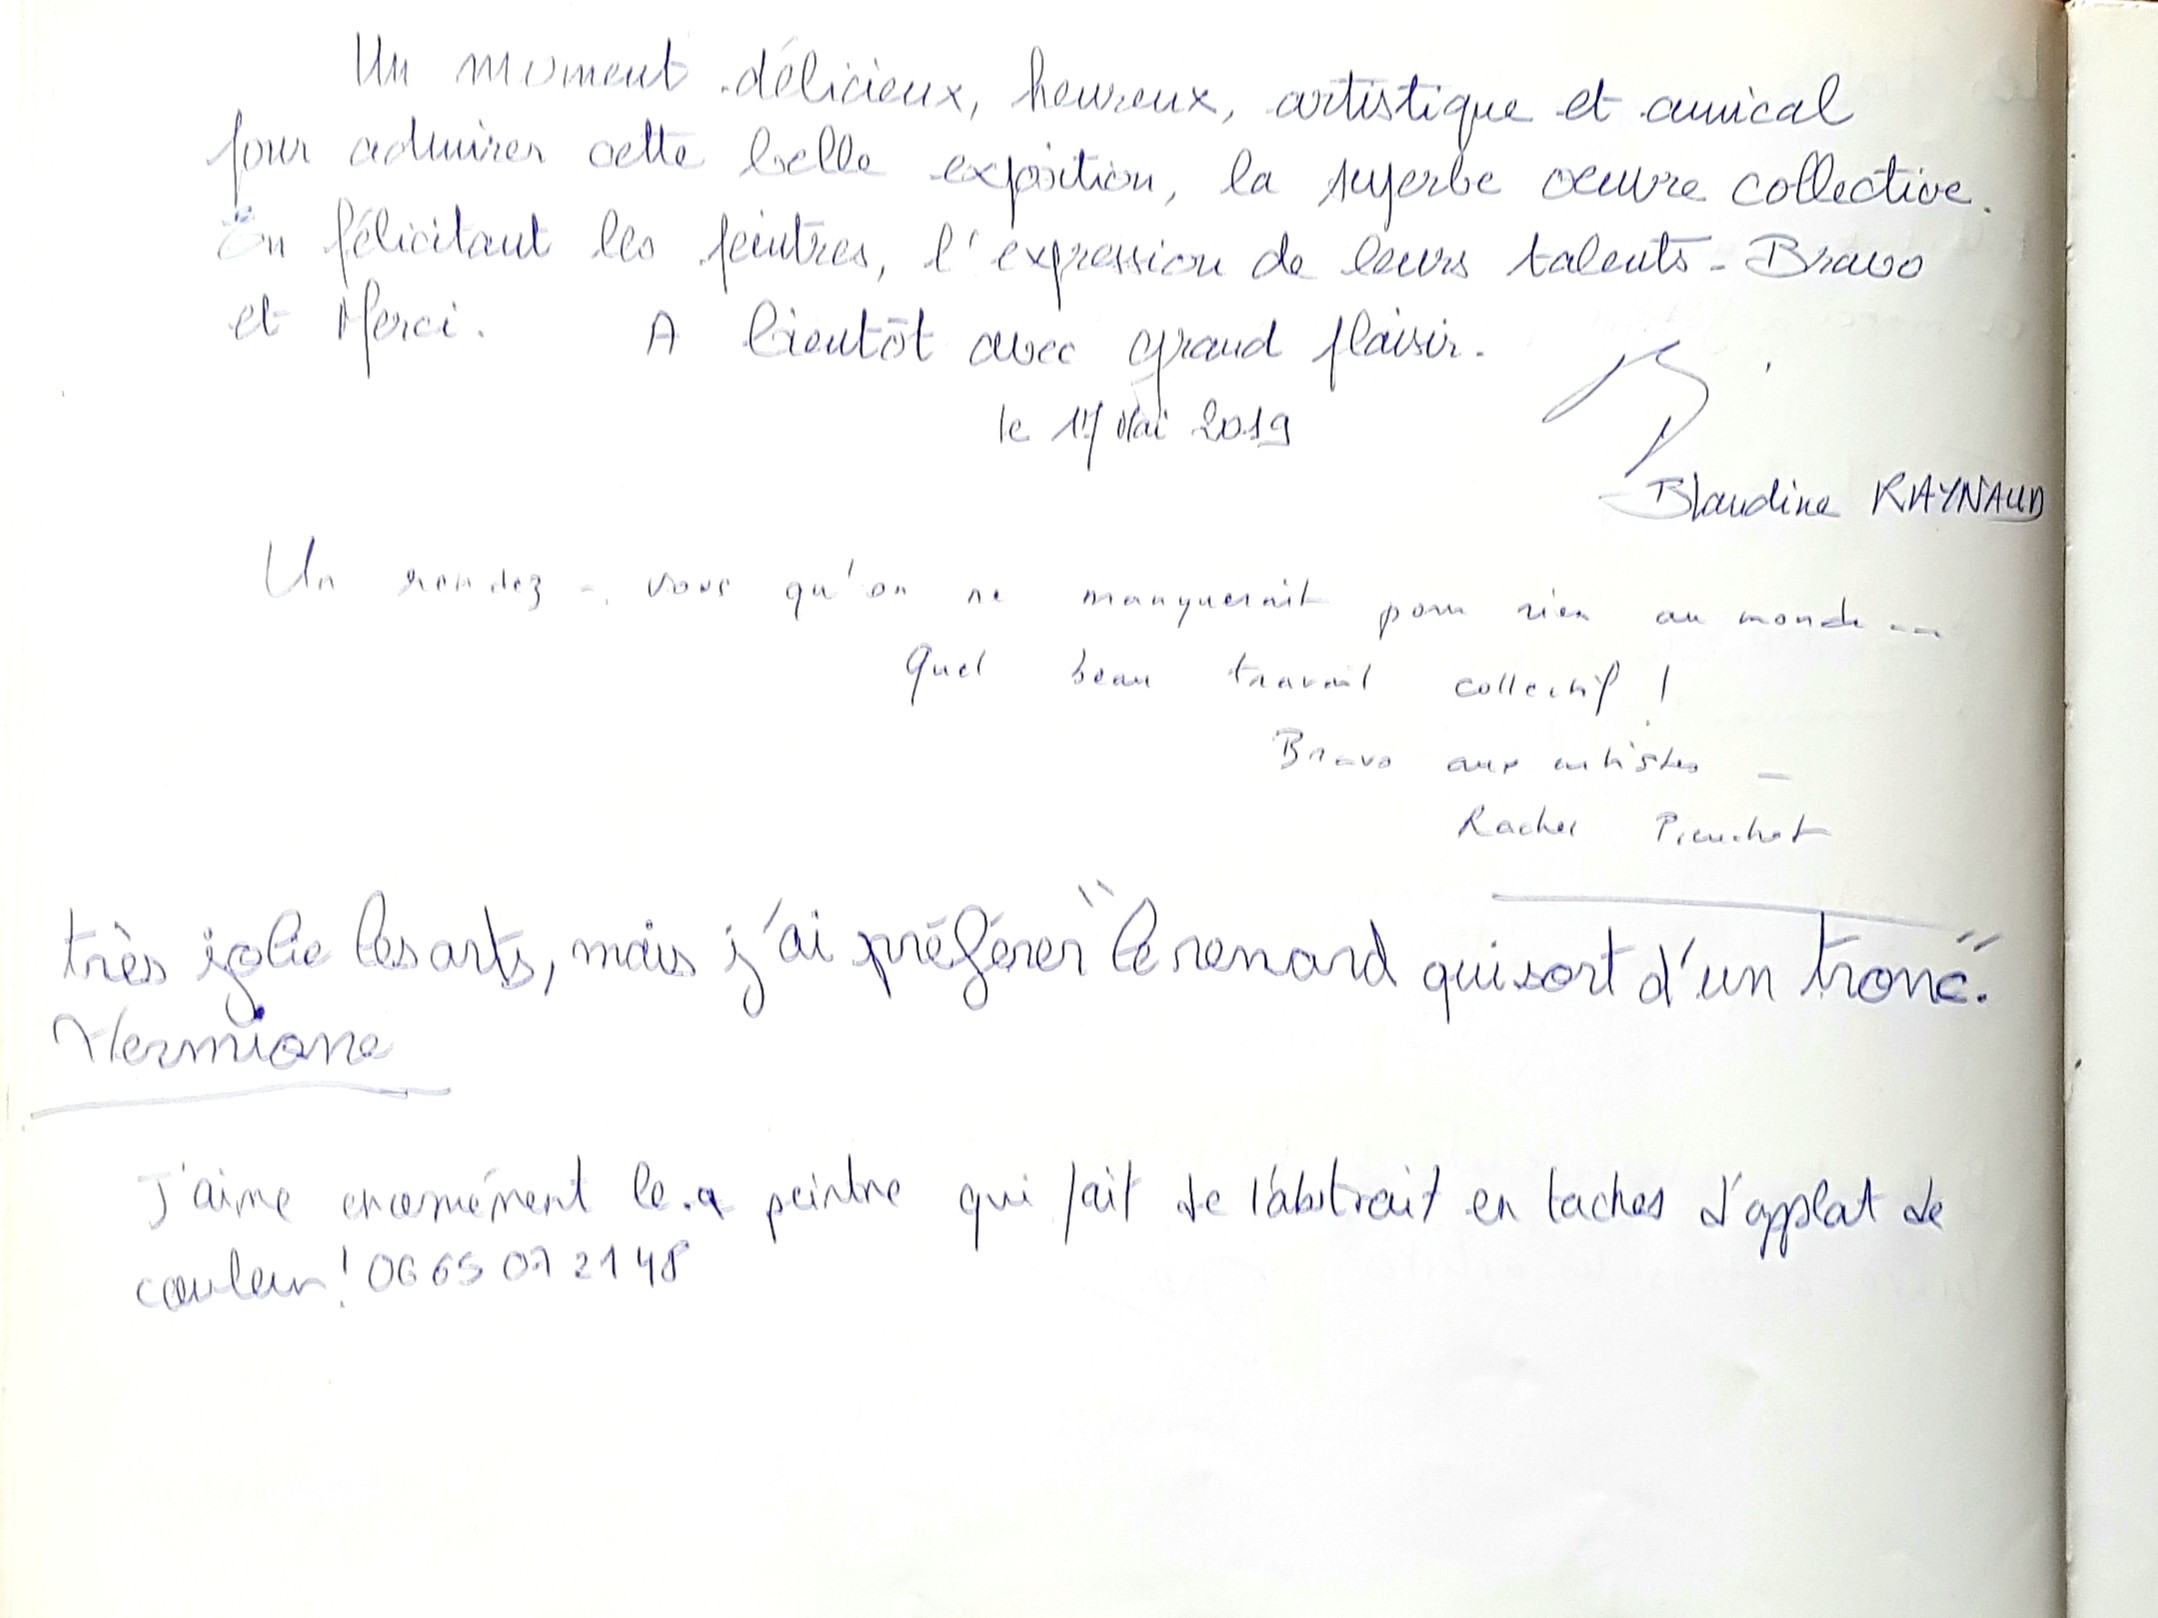 Un moment délicieux, heureux, artistique et amical
pour admirer cette belle exposition, la superbe oeuvre collective.
En félicitant les peintres, l'expression de leurs talents - Bravo
et Merci. A bientôt avec grand plaisir.
le 17 Mai 2019
Blandine RAYNAUD
Un rendez-vous qu'on ne manquerait pour rien au monde ...
Quel beau travail collectif !
Bravo aux artistes -
Rachel
très jolie les arts, mais j'ai préférer "le renard qui sort d'un tronc".
Hermione
J'aime enormément le.a peintre qui fait de l'abstrait en taches d'applat de
couleur! 06 65 07 21 48